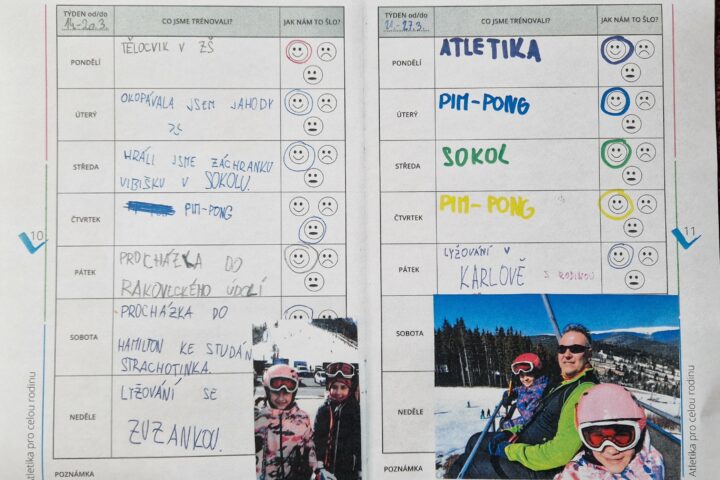 TÝDEN od/do
14.-20.3.
CO JSME TRÉNOVALI?
JAK NÁM TO ŠLO?
PONDĚLÍ
TĚLOCVIK V ZŠ
ÚTERÝ
OKOPÁVALA JSEM JAHODY
ZŠ
STŘEDA
HRÁLI JSME ZÁCHRANKU
VIBIŠKU V SOKOLU.
ČTVRTEK
PIM-PONG
PÁTEK
PROCHÁZKA DO
RAKOVECKÉHO ÚDOLÍ
SOBOTA
PROCHÁZKA DO
HAMILTON KE STUDÁN
STRACHOTINKA.
NEDĚLE
LYŽOVÁNÍ SE
ZUZANKOU.
POZNÁMKA
10
Atletika pro celou rodinu
TÝDEN od/do
21.-27.3.
CO JSME TRÉNOVALI?
JAK NÁM TO ŠLO?
PONDĚLÍ
ATLETIKA
ÚTERÝ
PIM-PONG
STŘEDA
SOKOL
ČTVRTEK
PIM-PONG
PÁTEK
LYŽOVÁNÍ V
KARLOVĚ S RODINOU
SOBOTA
NEDĚLE
POZNÁMKA
11
Atletika pro celou rodinu